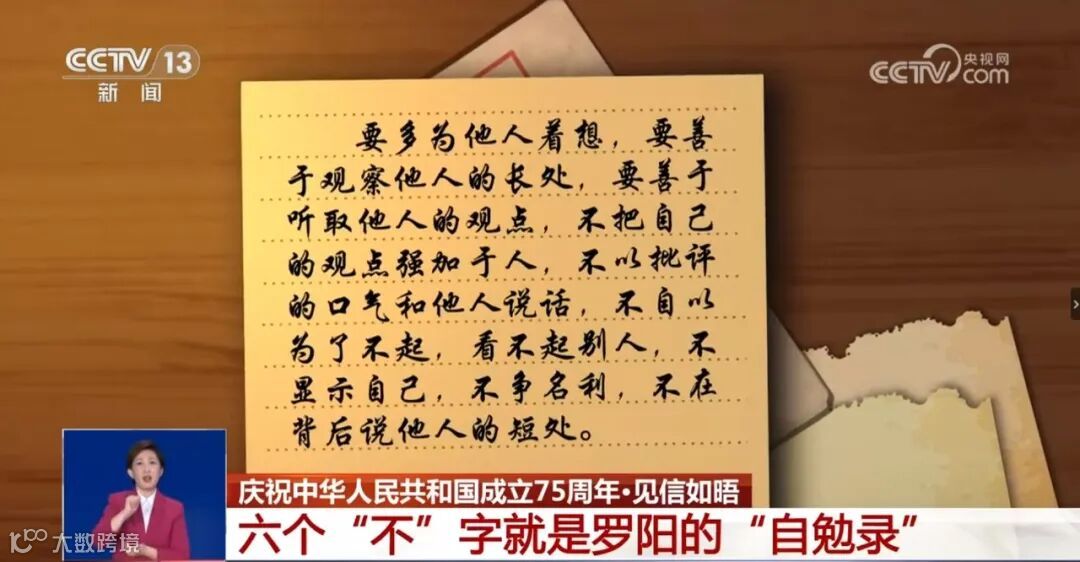 CCTV 13
新闻
央视网
CCTV.com
要多为他人着想，要善
于观察他人的长处，要善于
听取他人的观点，不把自己
的观点强加于人，不以批评
的口气和他人说话，不自以
为了不起，看不起别人，不
显示自己，不争名利，不在
背后说他人的短处。
庆祝中华人民共和国成立75周年·见信如晤
六个“不”字就是罗阳的“自勉录”
大数跨境